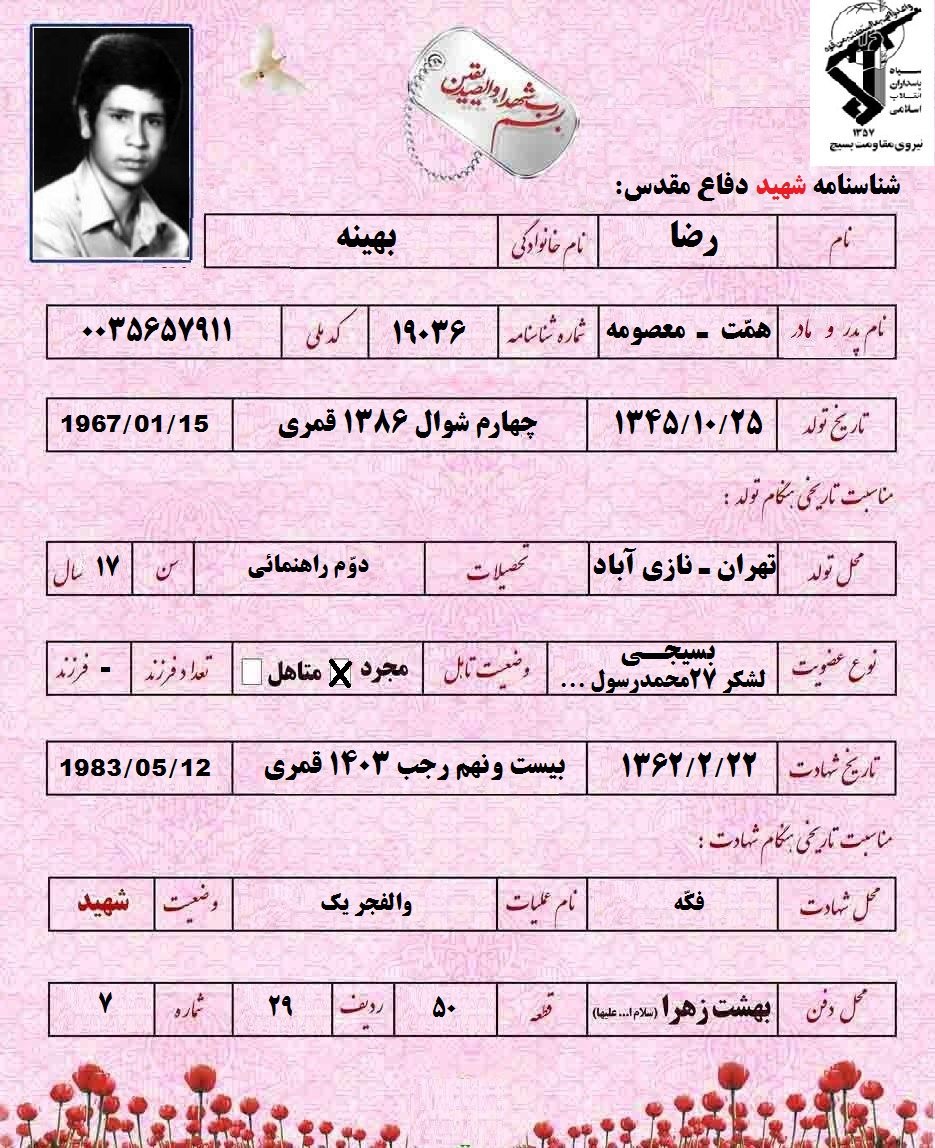 بسم رب شهدا والصدیقین
سپاه
پاسداران
انقلاب
اسلامی
۱۳۵۷
نیروی مقاومت بسیج
شناسنامه شهید دفاع مقدس:
نام رضا نام خانوادگی بهینه
نام پدر و مادر همّت - معصومه شماره شناسنامه ۱۹۰۳۶ کد ملی ۰۰۳۵۶۵۷۹۱۱
تاریخ تولد ۱۳۴۵/۱۰/۲۵ چهارم شوال ۱۳۸۶ قمری 1967/01/15
مناسبت تاریخی هنگام تولد :
محل تولد تهران - نازی آباد تحصیلات دوّم راهنمائی سن ۱۷ سال
نوع عضویت بسیجی
لشکر ۲۷محمدرسول ... وضعیت تاهل مجرد متاهل تعداد فرزند - فرزند
تاریخ شهادت ۱۳۶۲/۲/۲۲ بیست ونهم رجب ۱۴۰۳ قمری 1983/05/12
مناسبت تاریخی هنگام شهادت :
محل شهادت فکّه نام عملیات والفجر یک وضعیت شهید
محل دفن بهشت زهرا (سلام ا... علیها) قطعه ۵۰ ردیف ۲۹ شماره ۷